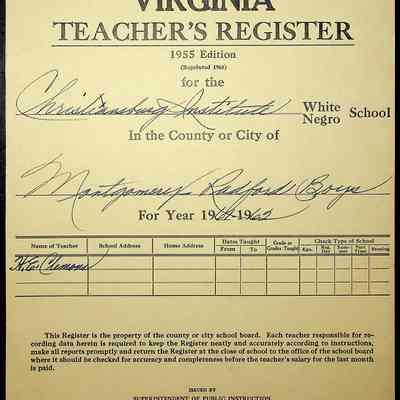 VIRGINIA
TEACHER'S REGISTER
1955 Edition
(Reprinted 1960)
for the
Christiansburg Institute White Negro School
In the County or City of
Montgomery Radford Boys
For Year 1961-1962
Name of Teacher School Address Home Address Dates Taught From To Grade or Grades Taught Check Type of School Reg. Day Part Time Evening
H.E. Clemons
This Register is the property of the county or city school board. Each teacher responsible for re-
cording data herein is required to keep the Register neatly and accurately according to instructions,
make all reports promptly and return the Register at the close of school to the office of the school board
where it should be checked for accuracy and completeness before the teacher's salary for the last month
is paid.
ISSUED BY
SUPERINTENDENT OF PUBLIC INSTRUCTION